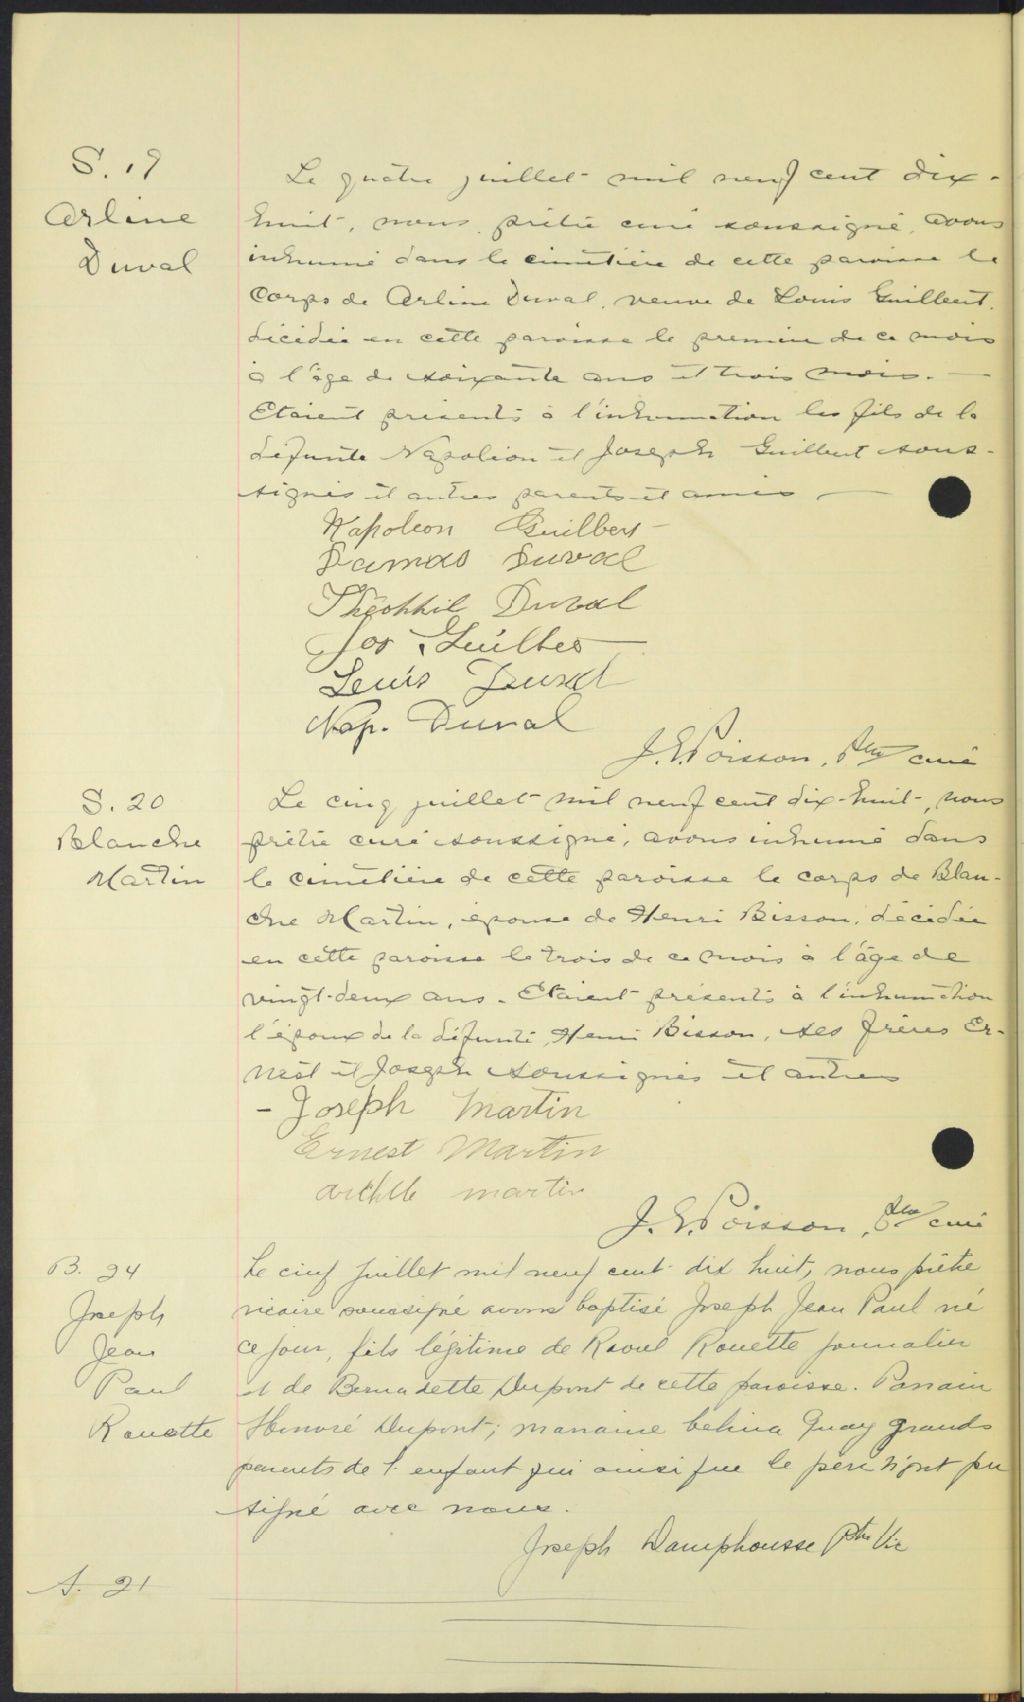 S. 19
Arline
Duval
Le quatre juillet mil neuf cent dix-
huit, nous, prêtre curé soussigné, avons
inhumé dans le cimetière de cette paroisse le
corps de Arline Duval, veuve de Louis Guilbert,
décédée en cette paroisse le premier de ce mois
à l'âge de soixante ans et trois mois. —
Etaient présents à l'inhumation les fils de la
défunte Napoléon et Joseph Guilbert sous-
signés et autres parents et amis —
Napoleon Guilbert
Damas Duval
Théophil Duval
Jos. Guilber
Louis Duval
Nap. Duval
J. E. Poisson, Ptre curé
S. 20
Blanche
Martin
Le cinq juillet mil neuf cent dix-huit, nous
prêtre curé soussigné, avons inhumé dans
le cimetière de cette paroisse le corps de Blan-
che Martin, épouse de Henri Bisson, décédée
en cette paroisse le trois de ce mois à l'âge de
vingt-deux ans. Etaient présents à l'inhumation
l'époux de la défunte, Henri Bisson, ses frères Er-
nest et Joseph soussignés et autres
- Joseph Martin
Ernest Martin
martin
J. E. Poisson, Ptre curé
B. 24
Joseph
Jean
Paul
Rouette
Le cinq juillet mil neuf cent dix huit, nous prêtre
vicaire soussigné avons baptisé Joseph Jean Paul né
ce jour, fils légitime de Raoul Rouette journalier
et de Bernadette Dupont de cette paroisse. Parrain
Honoré Dupont; marraine Guay grands
parents de l'enfant qui ainsi que le père n'ont pu
signé avec nous.
Joseph Damphousse Ptre Vic
S. 21